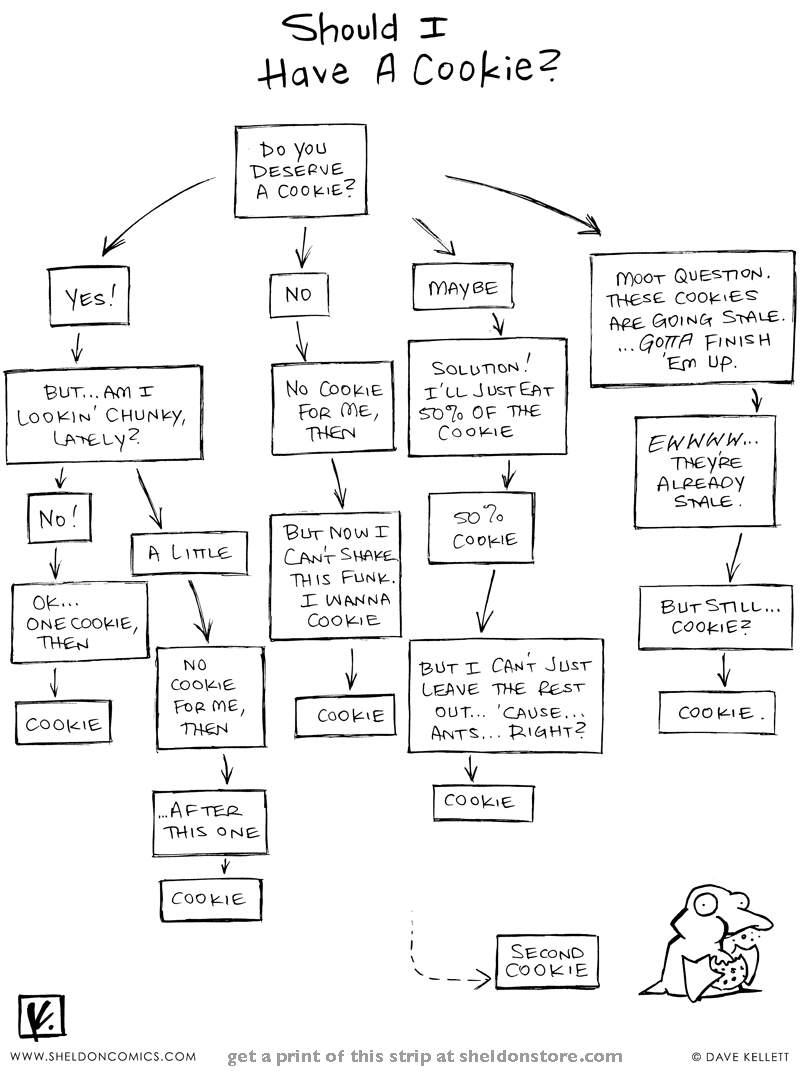 Should I
Have A Cookie?
DO YOU
DESERVE
A COOKIE?
YES!
BUT...AM I
LOOKIN' CHUNKY,
LATELY?
NO!
OK...
ONE COOKIE,
THEN
COOKIE
A LITTLE
NO
COOKIE
FOR ME,
THEN
...AFTER
THIS ONE
COOKIE
NO
NO COOKIE
FOR ME,
THEN
BUT NOW I
CAN'T SHAKE
THIS FUNK.
I WANNA
COOKIE
COOKIE
MAYBE
SOLUTION!
I'LL JUST EAT
50% OF THE
COOKIE
50%
COOKIE
BUT I CAN'T JUST
LEAVE THE REST
OUT... 'CAUSE...
ANTS... RIGHT?
COOKIE
MOOT QUESTION.
THESE COOKIES
ARE GOING STALE.
...GOTTA FINISH
'EM UP.
EWWWW...
THEY'RE
ALREADY
STALE.
BUT STILL...
COOKIE?
COOKIE.
SECOND
COOKIE
WWW.SHELDONCOMICS.COM
get a print of this strip at sheldonstore.com
© DAVE KELLETT